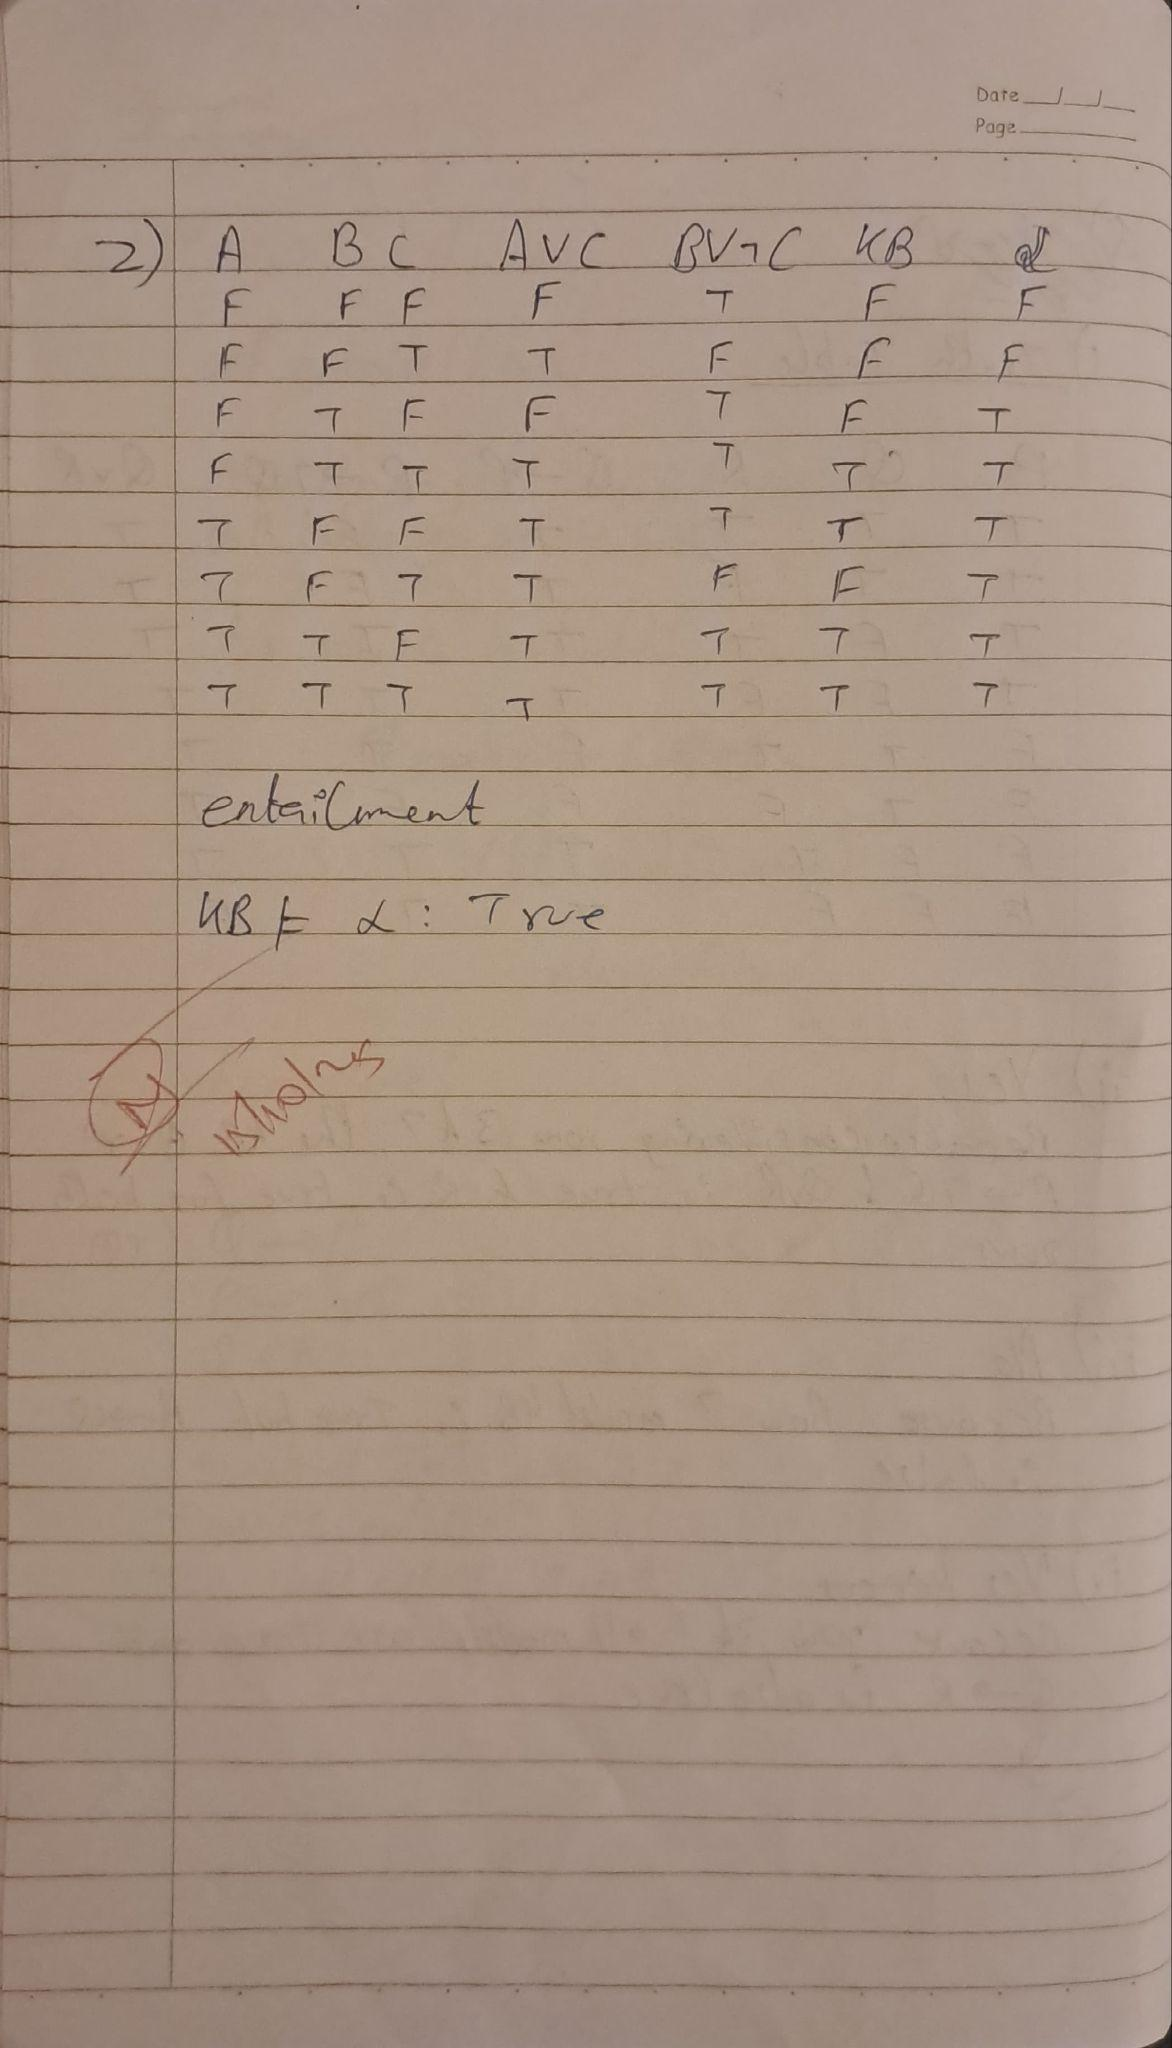 Date
Page
2) A B C A∨C B∨¬C KB α
F F F F T F F
F F T T F F F
F T F F T F T
F T T T T T T
T F F T T T T
T F T T F F T
T T F T T T T
T T T T T T T
entailment
KB ⊨ α : True